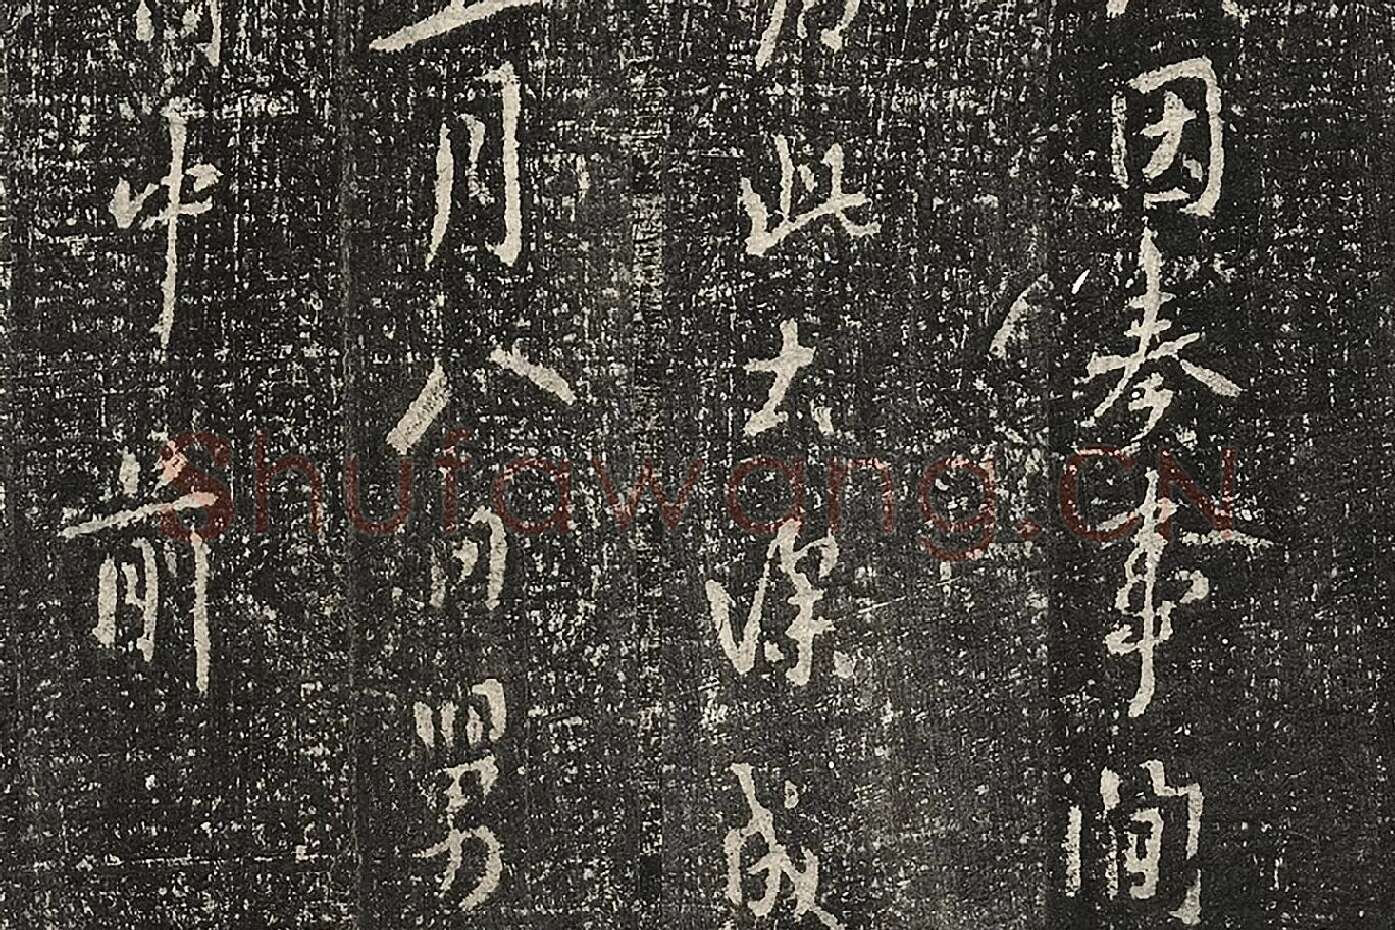 因奏事閒
此去深成
月八日罗
中前
Shufawang.CN